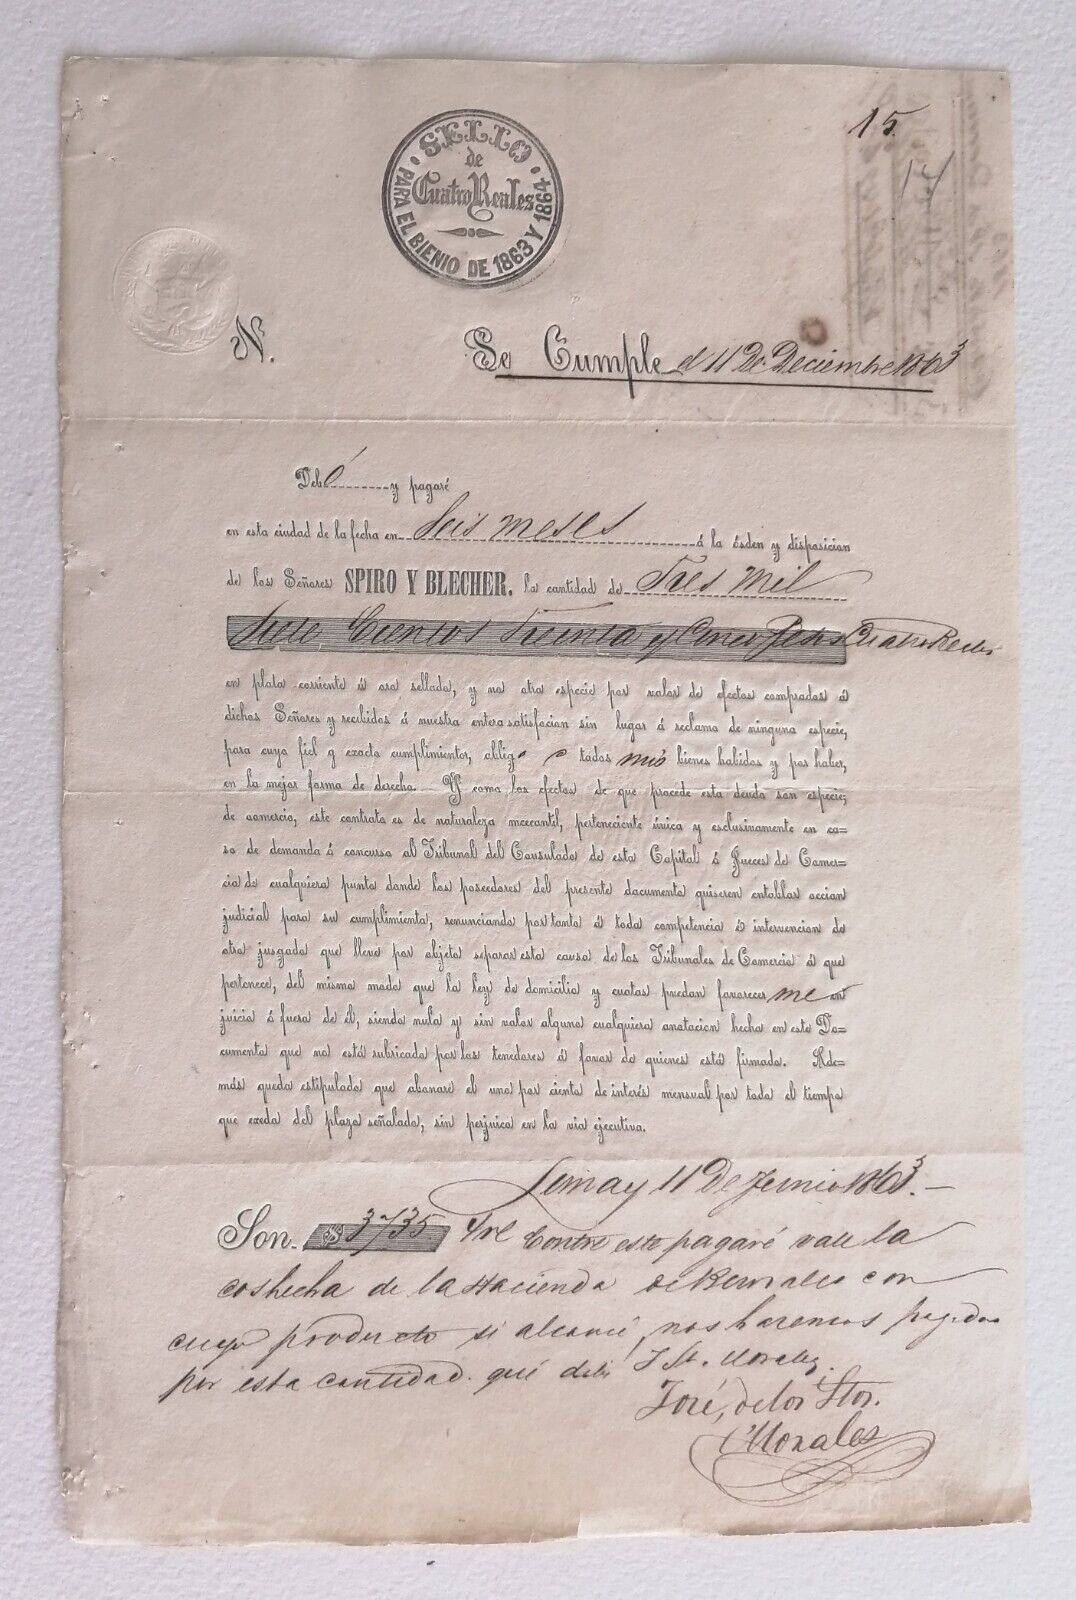 SELLO
de
Cuatro Reales
PARA EL BIENIO DE 1863 Y 1864
15.
14
N.
Se Cumple el 11 De Deciembre 1863
Debo y pagaré
en esta ciudad de la fecha en Seis meses á la órden y disposicion
de los Señores SPIRO Y BLECHER. la cantidad de Tres mil
Siete Cientos Treinta y Cinco Pesos Cuatro Reales
en plata corriente ú oro sellado, y no otra especie por valor de efectos comprados á
dichos Señores y recibidos á nuestra entera satisfacion sin lugar á reclamo de ninguna especie,
para cuyo fiel y exacto cumplimiento, obligo todos mis bienes habidos y por haber,
en la mejor forma de derecho. Y como los efectos de que procede esta deuda son especie;
de comercio, este contrato es de naturaleza mercantil, perteneciente única y esclusivamente en ca-
so de demanda ó concurso al Tribunal del Consulado de esta Capital ó Jueces de Comer-
cio de cualquiera punto donde los poseedores del presente documento quiseren entablar accion
judicial para su cumplimiento, renunciando por tanto á toda competencia ó intervencion de
otro juzgado que lleve por objeto separar esta causa de los Tribunales de Comercio á que
pertenece, del mismo modo que la ley de domicilio y cuotas puedan favorecerme en
juicio ó fuera de él, siendo nula y sin valor alguno cualquiera anotacion hecha en este Do-
cumento que no está rubricada por los tenedores á favor de quienes está firmado. Ade-
más queda estipulado que abonaré el uno por ciento de interés mensual por todo el tiempo
que exeda del plazo señalado, sin perjuicio en la via ejecutiva.
Lima y 11 De Junio 1863.—
Son. $ 3735 4 rl Contra este pagaré vale la
coshecha de la Hacienda de con
cuyo producto si alcance, nos haremos pagados
por esta cantidad. que debe J St. Morales.
José, de los Stos.
Morales